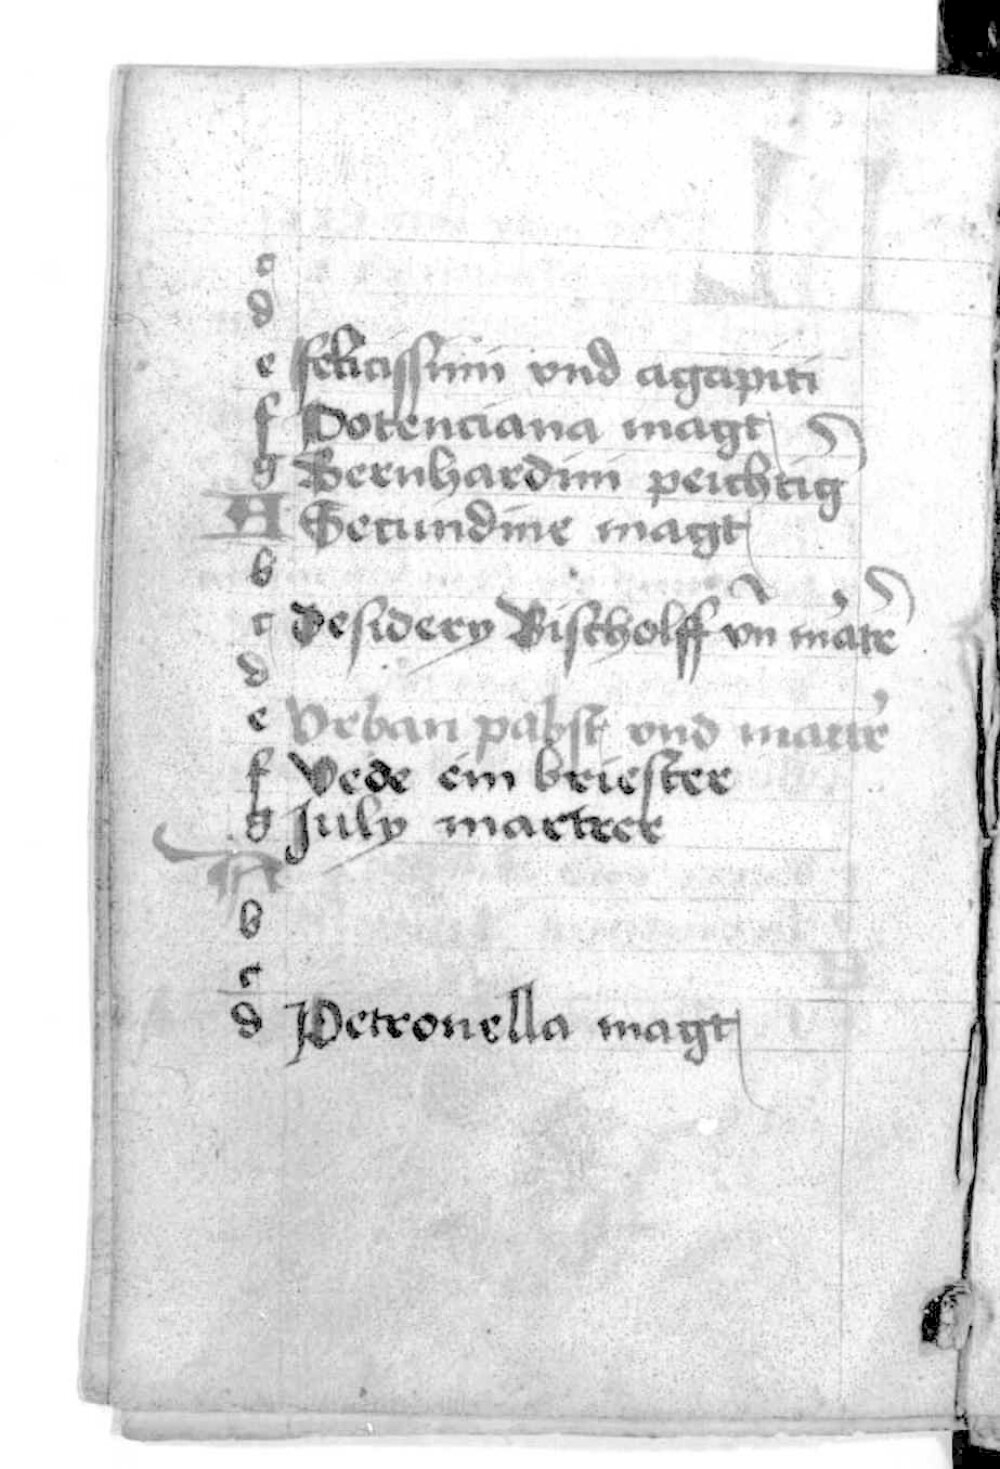 c
d
e felicissimi vnd agapiti
f Potenciana magt
g Bernhardini peichtig
A Secundine magt
b
c desidery Bischolff vn̄ mart̄
d
e Vrban pabst vnd martr̄
f Vede ein briester
g July martrer
A
b
c
d Petronella magt